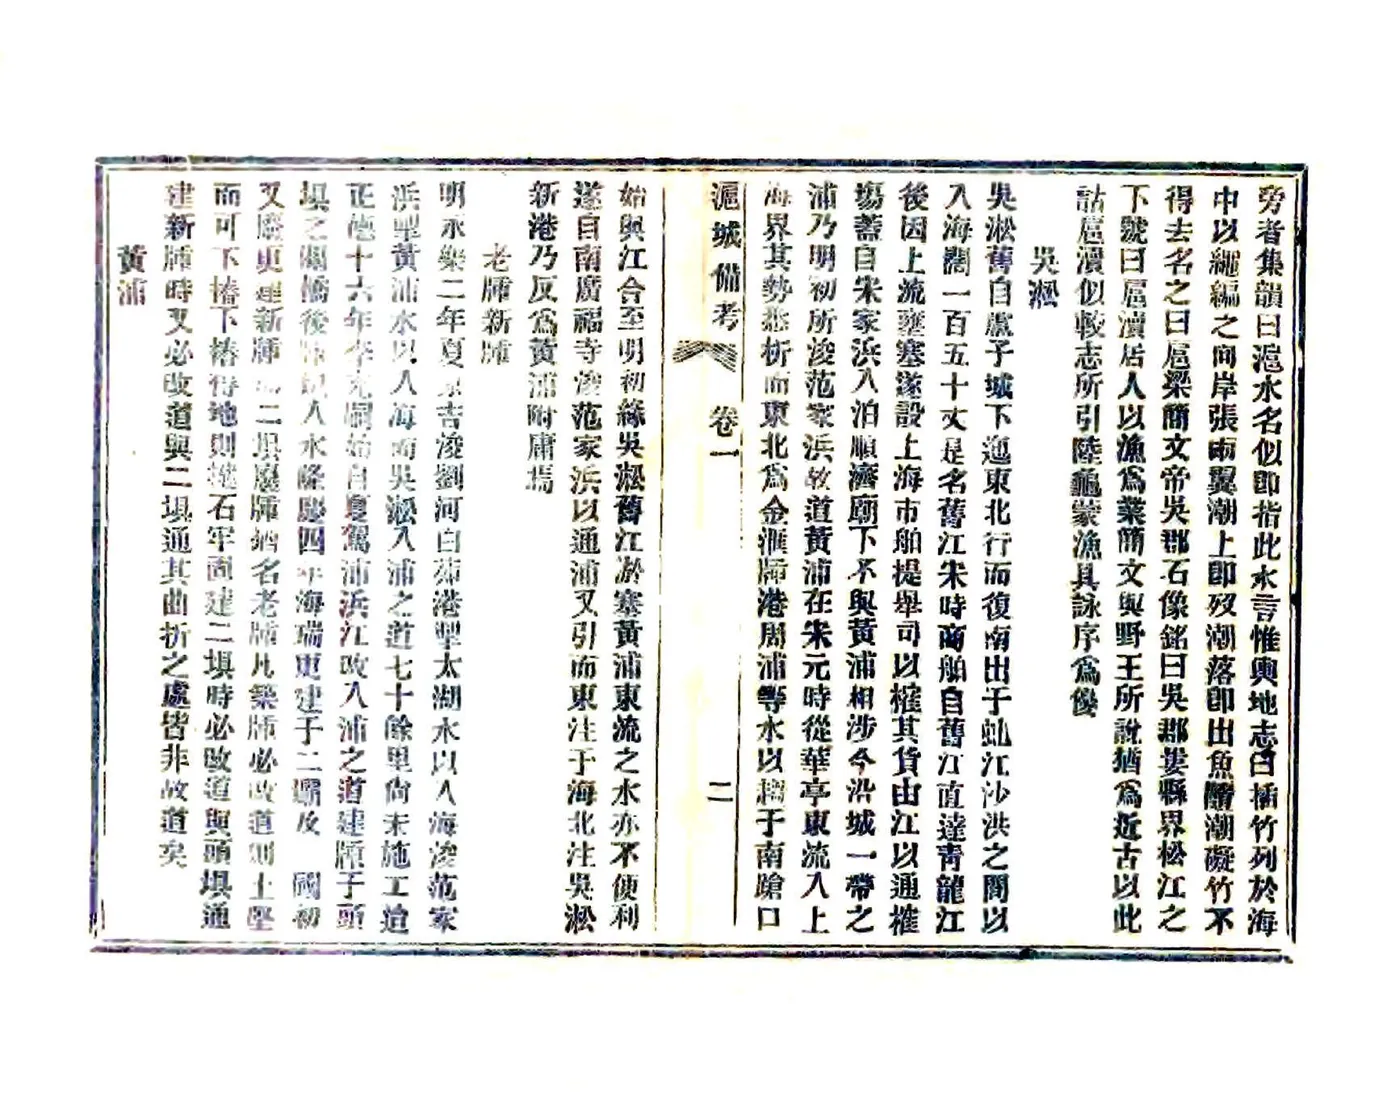 旁者集韻曰滬水名似即指此水言惟輿地志曰插竹列於海
中以繩編之向岸張兩翼潮上即歿潮落即出魚隨潮礙竹不
得去名之曰扈梁簡文帝吳郡石像銘曰吳郡婁縣界松江之
下號曰扈瀆居人以漁爲業簡文與野王所說猶爲近古以此
詁扈瀆似較志所引陸龜蒙漁具詠序爲優
吳淞
吳淞舊自盧子城下迤東北行而復南出于虬江沙洪之間以
入海闊一百五十丈是名舊江宋時商舶自舊江直達青龍江
後因上流壅塞遂設上海市舶提舉司以榷其貨由江以通榷
場蓋自宋家浜入泊順濟廟下不與黃浦相涉今沿城一帶之
浦乃明初所浚范家浜故道黃浦在宋元時從華亭東流入上
海界其勢悉析而東北爲金滙牐港周浦等水以趨于南蹌口
滬城備考 卷一 二
始與江合至明初緣吳淞舊江淤塞黃浦東流之水亦不便利
遂自南廣福寺浚范家浜以通浦又引而東注于海北注吳淞
新港乃反爲黃浦附庸焉
老牐新牐
明永樂二年夏原吉浚劉河白茆港掣太湖水以入海浚范家
浜掣黃浦水以入海而吳淞入浦之道七十餘里尚未施工迨
正德十六年李充嗣始自夏駕浦浜江改入浦之道建牐于頭
壩之關橋後 入水隆慶四年海瑞更建于二壩及 國初
又廢更建新牐 二壩廢牐猶名老牐凡築牐必改道則土堅
而可下樁下樁得地則 石牢固建二壩時必改道與頭壩通
建新牐時又必改道與二壩通其曲折之處皆非故道矣
黃浦